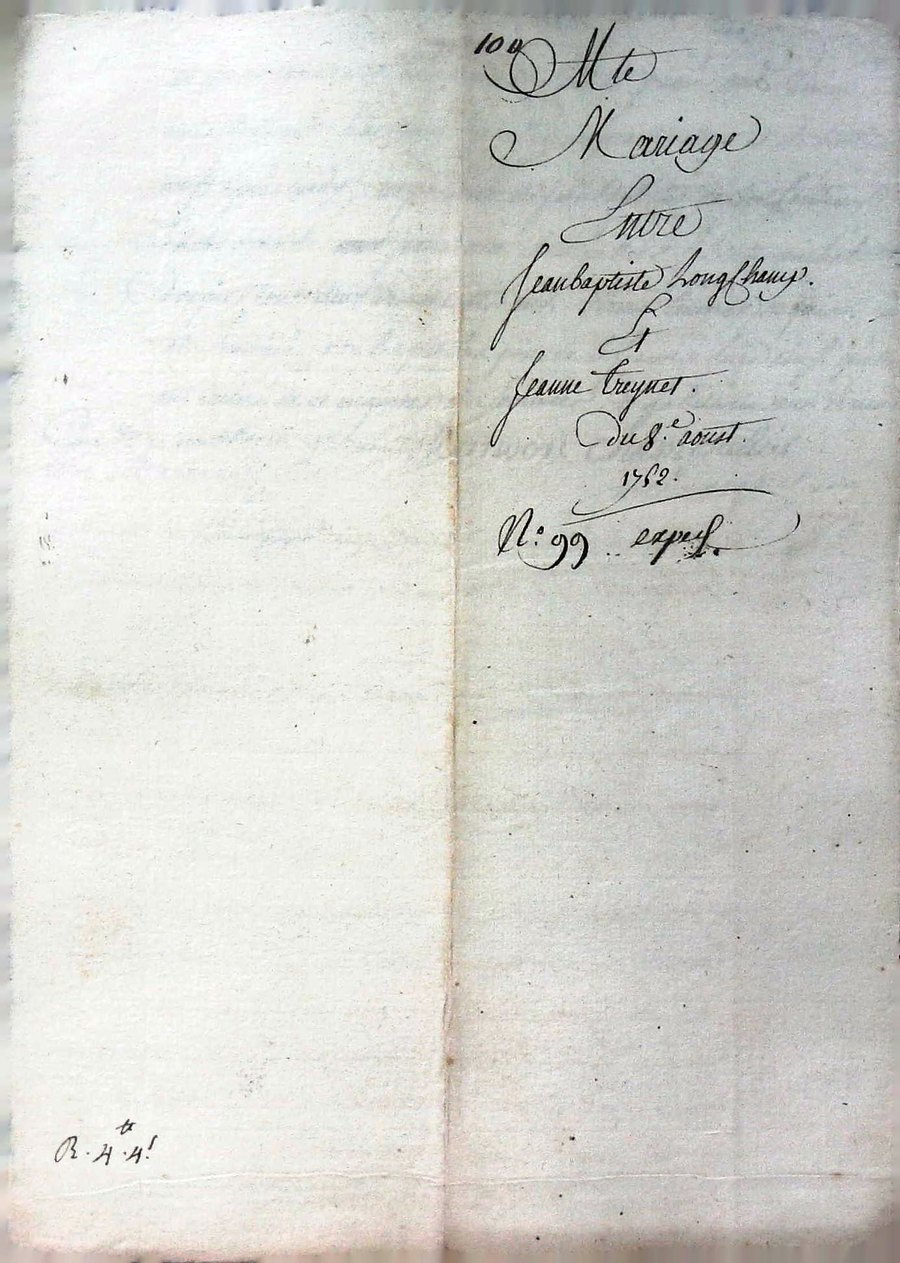 109
Mte
Mariage
Entre
Jeanbaptiste LongChamp.
Et
Jeanne treynet.
du 8.e aoust.
1762.
N.o 99 .. exped.
R. 4tt. 4s